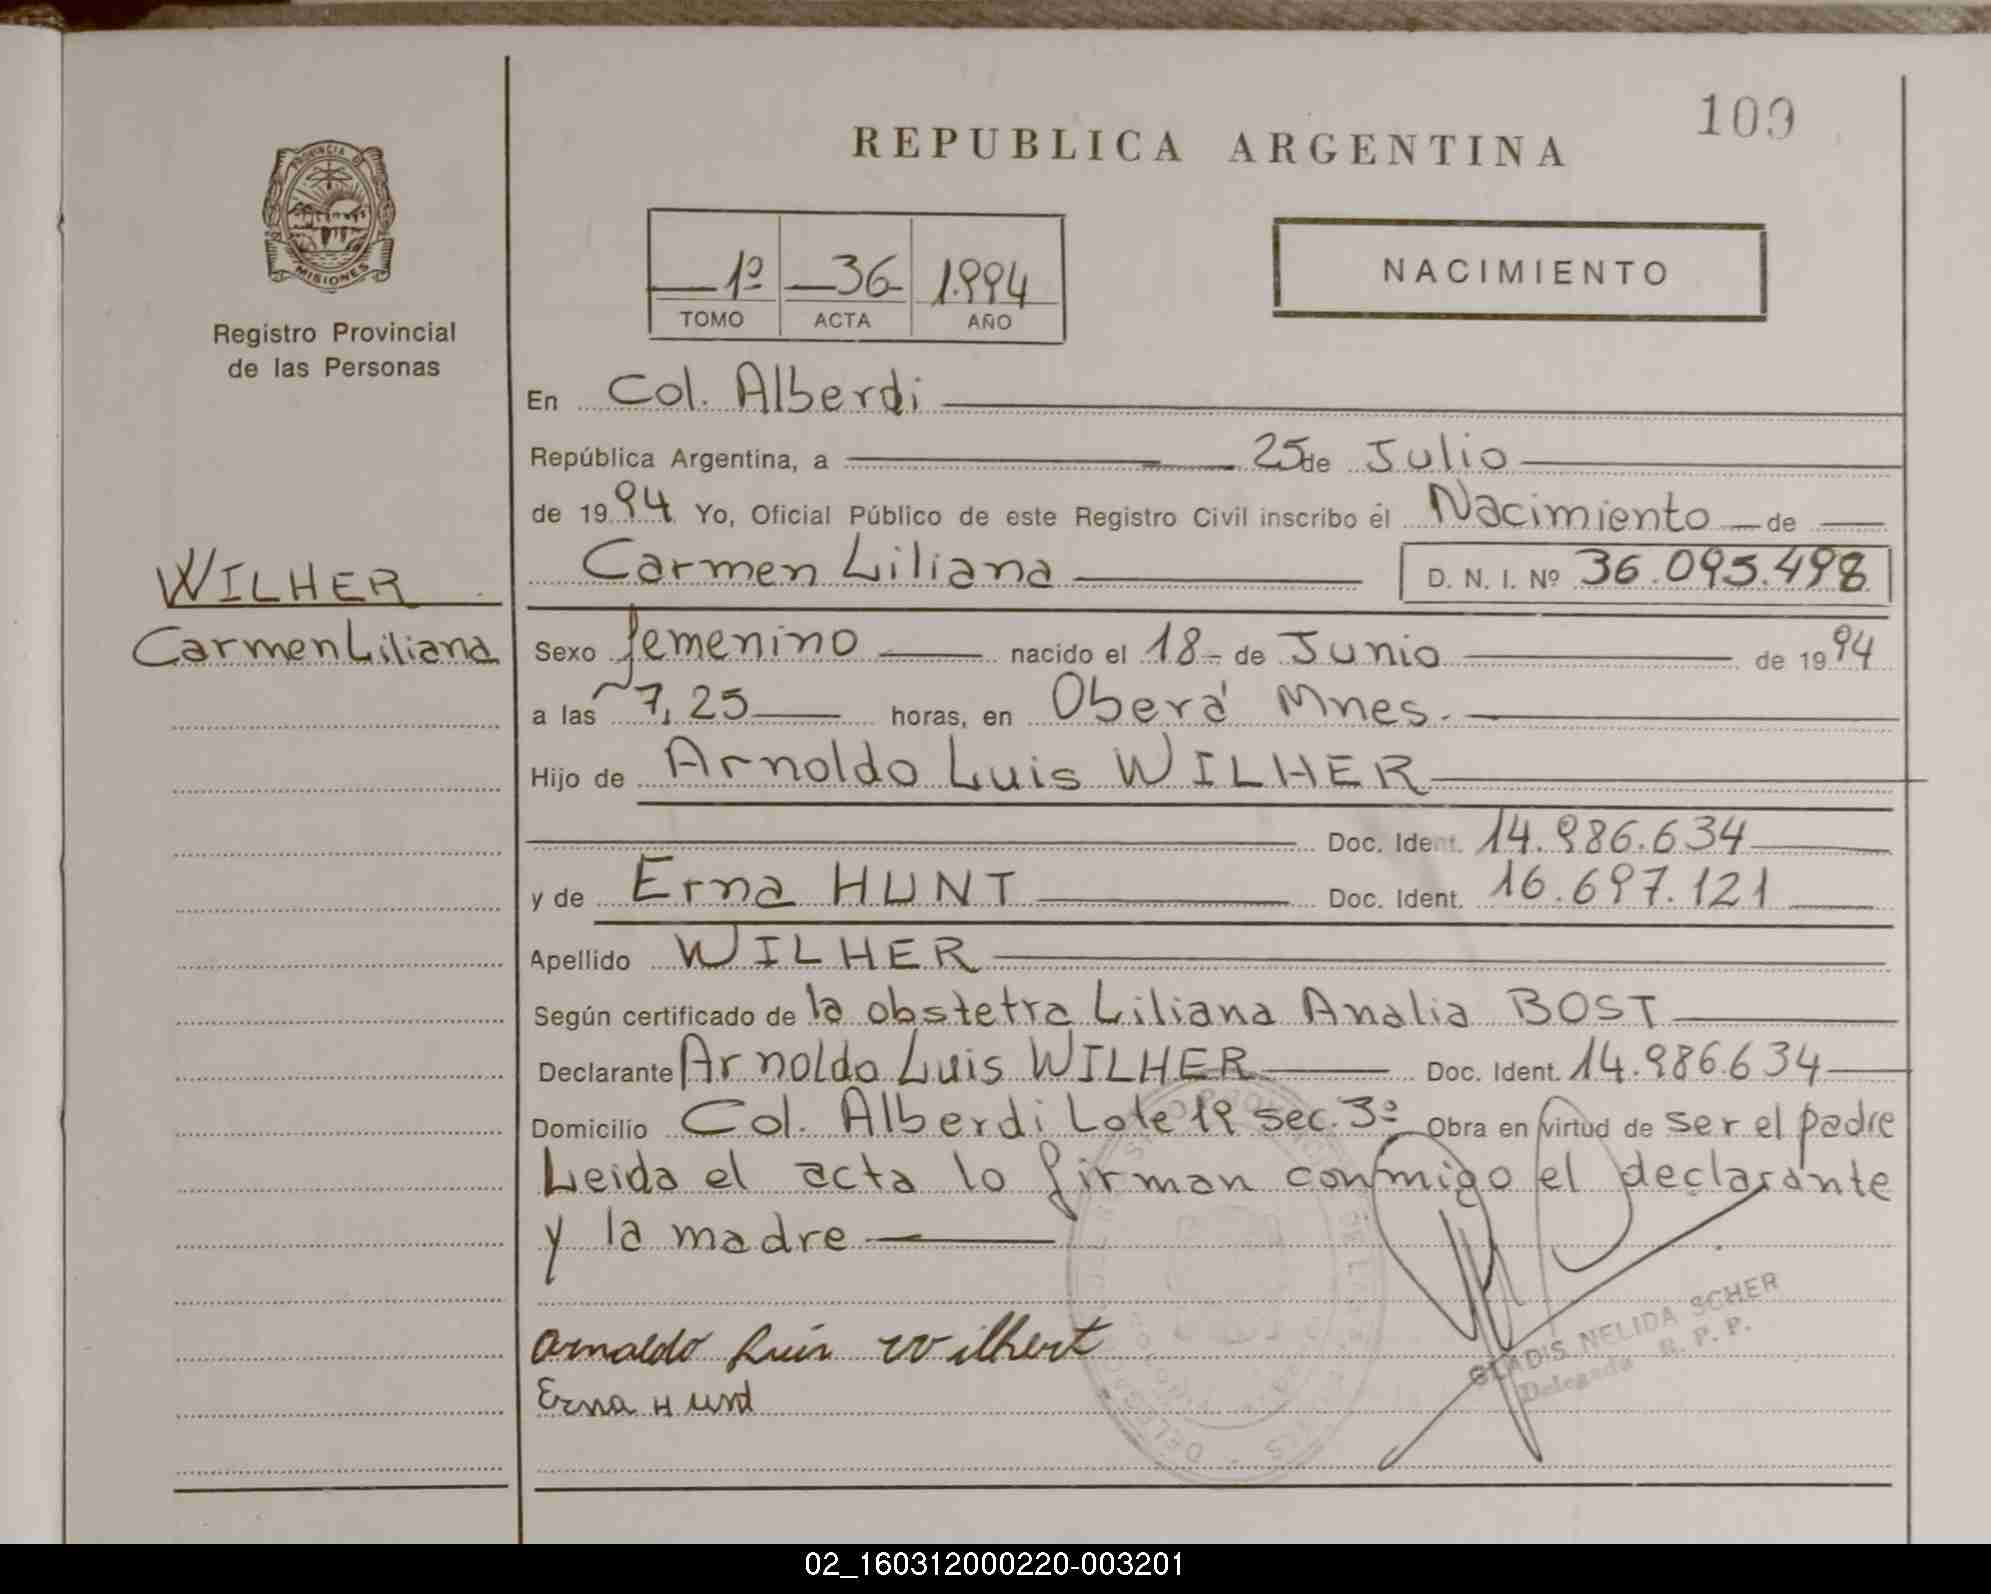 109
REPUBLICA ARGENTINA
PROVINCIA DE
MISIONES
Registro Provincial
de las Personas
1º 36 1.994
TOMO ACTA AÑO
NACIMIENTO
En Col. Alberdi
República Argentina, a 25 de Julio
de 1994 Yo, Oficial Público de este Registro Civil inscribo el Nacimiento de
Carmen Liliana D. N. I. Nº 36.095.498
WILHER
Carmen Liliana
Sexo femenino nacido el 18 de Junio de 1994
a las 7,25 horas, en Oberá Mnes.
Hijo de Arnoldo Luis WILHER
Doc. Ident. 14.986.634
y de Erna HUNT Doc. Ident. 16.697.121
Apellido WILHER
Según certificado de la obstetra Liliana Analia BOST
Declarante Arnoldo Luis WILHER Doc. Ident. 14.986.634
Domicilio Col. Alberdi Lote sec. 3ª Obra en virtud de ser el padre
Leida el acta lo firman conmigo el declarante
y la madre
Arnaldo Luis Wilhert
Erna Hund
GLADIS NELIDA SCHER
Delegada R. P. P.
02_160312000220-003201